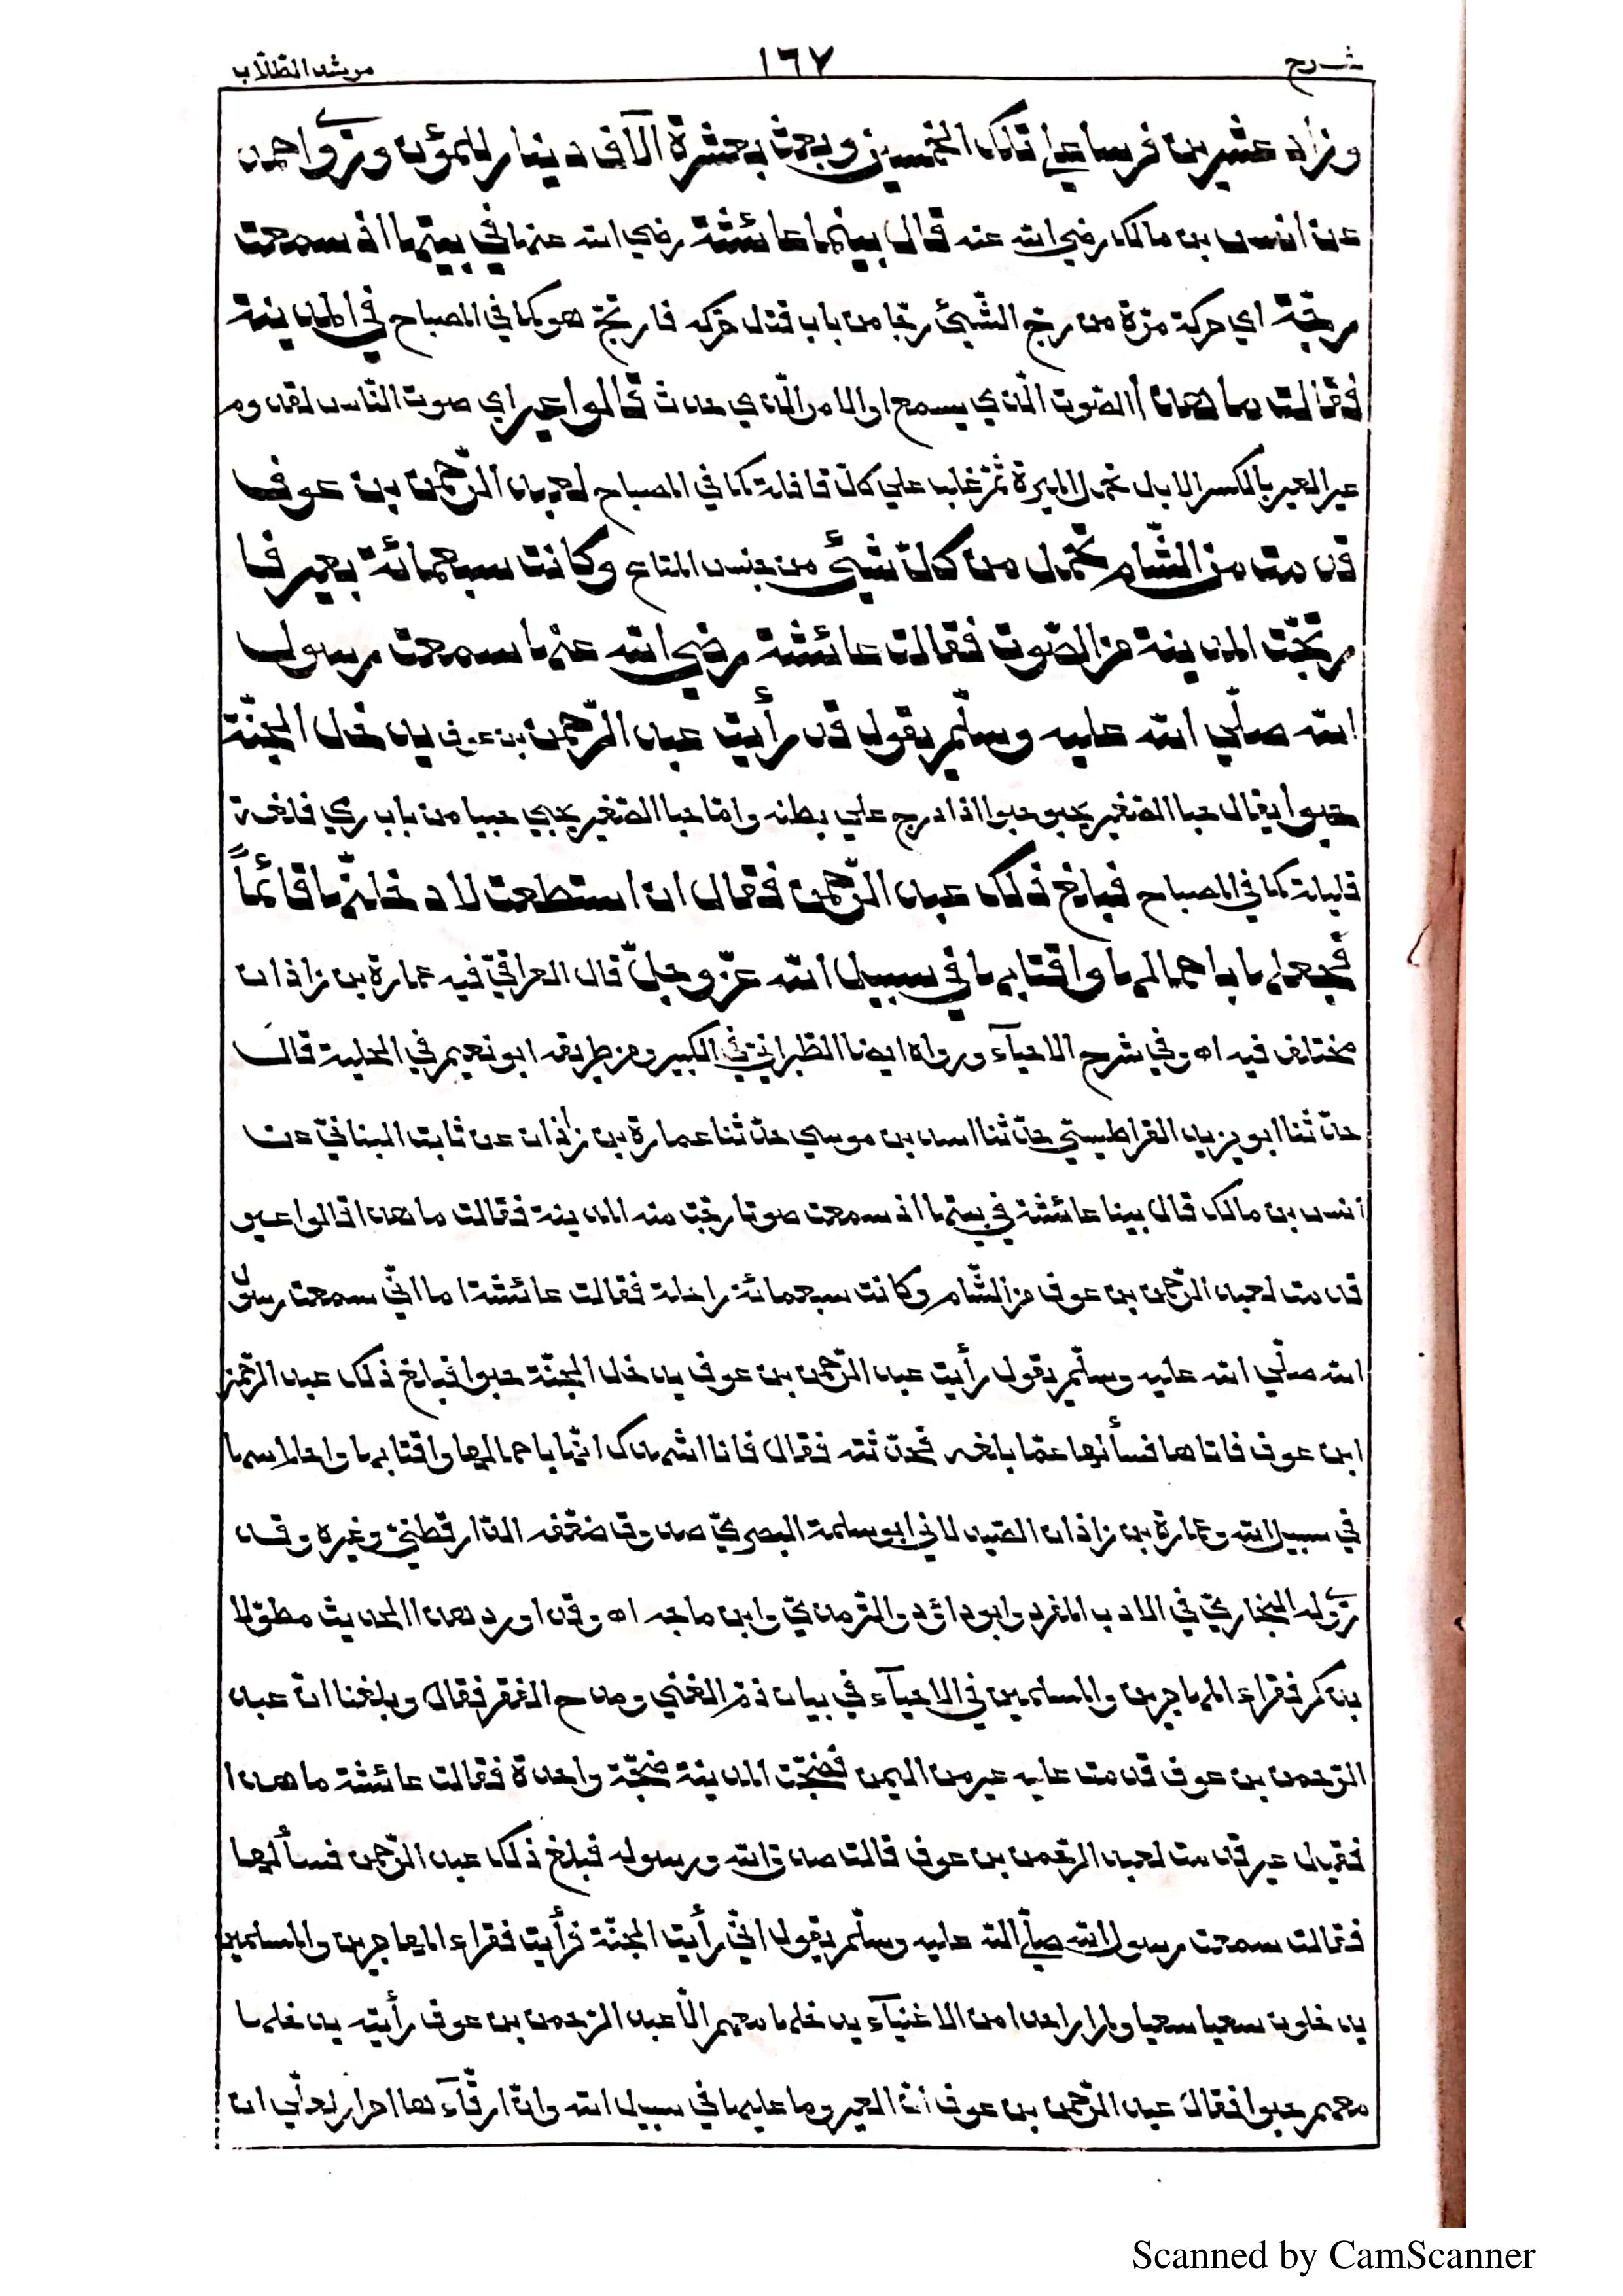 شرح
١٦٧
مرشد الطلّاب
وزاد عشرين فرسا علي تلك الخمسين وبعث بعشرة آلاف دينار للمؤن وروٰي احمد
عن انس بن مالك رضي الله عنه قال بينما عائشة رضي الله عنها في بيتها اذ سمعت
رجّة اي حركة مرّة من رجّ الشّيئ رجّا من باب قتل حرّكه فارتجّ هو كما في المصباح في المدينة
فقالت ما هذا الصّوت الّذي يسمع او الامر الّذي حدث قالوا عير اي صوت النّاس لقدوم
عير العير بالكسر الابل تحمل الميرة ثمّ غلب علي كلّ قافلة كما في المصباح لعبد الرّحمن بن عوف
قدمت من الشّام تحمل من كلّ شيئ من جنس المتاع وكانت سبعمائة بعير فا
رتجّت المدينة من الصّوت فقالت عائشة رضي الله عنها سمعت رسول
الله صلّي الله عليه وسلّم يقول قد رأيت عبد الرّحمن بن عوف يدخل الجنّة
حبوا يقال حبا الصّغير يحبو حبوا اذا درج علي بطنه وامّا حبا الصّغير يحبي حبيا من باب رمي فلغة
قليلة كما في المصباح فبلغ ذلك عبد الرّحمن فقال ان استطعت لادخلنّها قائماً
فجعلها باحمالها واقتابها في سبيل الله عزّ وجلّ قال العراقيّ فيه عمارة بن زاذان
مختلف فيه اه وفي شرح الاحيآء ورواه ايضا الطّبرانيّ في الكبير ومن طريقه ابو نعيم في الحلية قال
حدّثنا ابو يزيد القراطيسيّ حدّثنا اسد بن موسي حدّثنا عمارة بن زاذان عن ثابت البنانيّ عن
انس بن مالك قال بينا عائشة في بيتها اذ سمعت صوتا رجّت منه المدينة فقالت ما هذا قالوا عير
قدمت لعبد الرّحمن بن عوف من الشّام وكانت سبعمائة راحلة فقالت عائشة اما انّي سمعت رسول
الله صلّي الله عليه وسلّم يقول رأيت عبد الرّحمن بن عوف يدخل الجنّة حبوا فبلغ ذلك عبد الرّحمن
ابن عوف فاتاها فسألها عمّا بلغه فحدّثته فقال فانا اشهدك انّها باحمالها واقتابها واحلاسها
في سبيل الله وعمارة بن زاذان الصّيدلاني ابو سلمة البصريّ صدوق ضعّفه الدّارقطنيّ وغيره وقد
روٰي له البخاريّ في الادب المفرد وابو داؤد والتّرمذيّ وابن ماجه اه وقد اورد هذا الحديث مطوّلا
بذكر فقراء المهاجرين والمسلمين في الاحيآء في بيان ذمّ الغني ومدح الفقر فقال وبلغنا انّ عبد
الرّحمن بن عوف قدمت عليه عير من اليمن فضجّت المدينة ضجّة واحدة فقالت عائشة ما هذا
فقيل عير قدمت لعبد الرّحمن بن عوف قالت صدق الله ورسوله فبلغ ذلك عبد الرّحمن فسألها
فقالت سمعت رسول الله صلّي الله عليه وسلّم يقول انّي رأيت الجنّة فرأيت فقراء المهاجرين والمسلمين
يدخلون سعيا سعيا ولم ار احدا من الاغنيآء يدخلها معهم الّا عبد الرّحمن بن عوف رأيته يدخلها
معهم حبوا فقال عبد الرّحمن بن عوف انّ العير وما عليها في سبيل الله وانّ ارقّآءها احرار لعلّي ان
Scanned by CamScanner